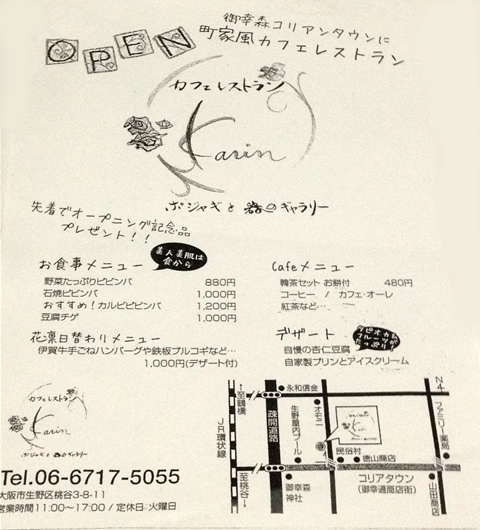 御幸森コリアンタウンに
町家風カフェレストラン
OPEN
カフェレストラン
Karin
ポジャギと器のギャラリー
先着でオープニング記念品
プレゼント!!
お食事メニュー
美人美肌は
食から
野菜たっぷりビビンバ 880円
石焼ビビンバ 1,000円
おすすめ!カルビビビンバ 1,200円
豆腐チゲ 1,000円
花凛日替わりメニュー
伊賀牛手ごねハンバーグや鉄板プルコギなど…
1,000円(デザート付)
Cafeメニュー
韓茶セット お餅付 480円
コーヒー / カフェ・オーレ
紅茶など…
デザート
タピオカと
フルーツが
たっぷり
自慢の杏仁豆腐
自家製プリンとアイスクリーム
カフェレストラン
Karin
ポジャギと器のギャラリー
Tel.06-6717-5055
大阪市生野区桃谷3-8-11
営業時間 11:00〜17:00 / 定休日:火曜日
至鶴橋
JR環状線
至桃谷
疎開道路
永和信金
生野屋内プール
オモニ
民俗村
徳山商店
御幸森
神社
コリアタウン
(御幸通商店街)
N4
ファミリー薬局
山田商店